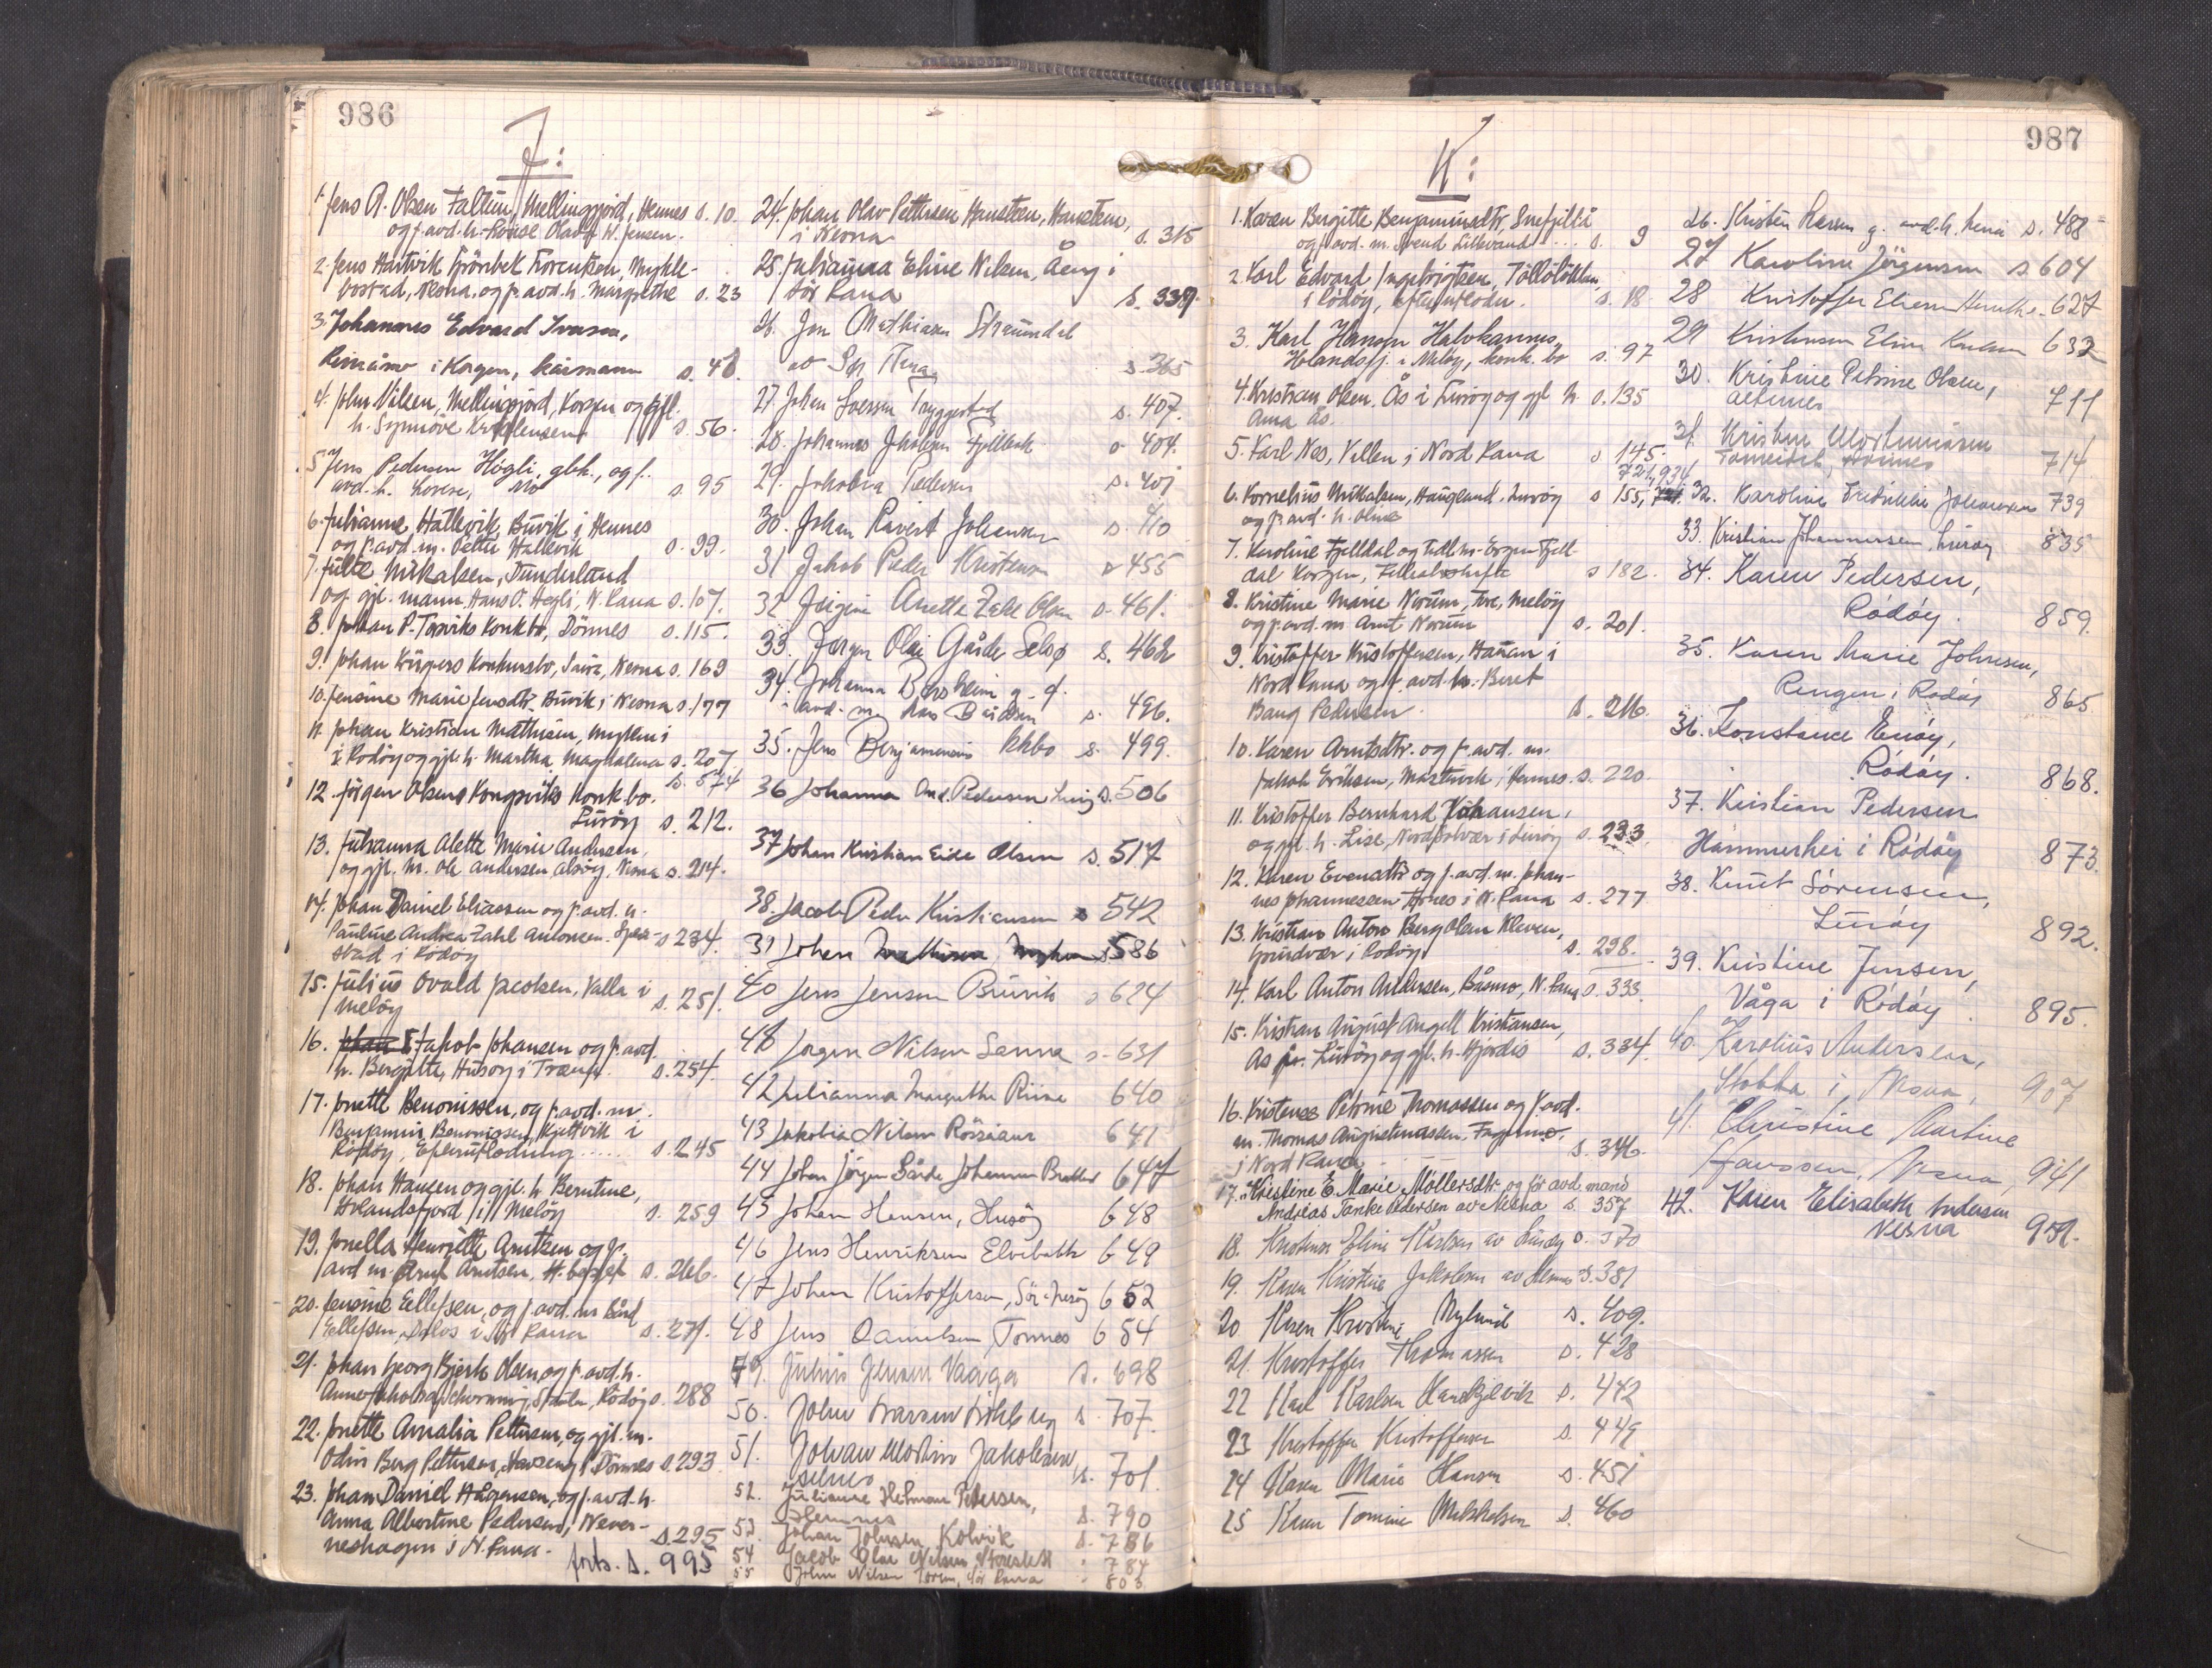 986
J:
1. Jens A. Olsen Faltun, Mellingfjord, Hemnes s. 10.
og f. avd. h. Olava W. Jensen.
2. Jens Hartvik Grönbek Lorentsen, Mykle-
bostad, Nesna, og f. avd. h. Margrethe s. 23
3. Johannes Edvard Ivarsen,
i Korgen, s. 48.
4. John Nilsen, Mellingfjord, Korgen og gjl.
h. Synnöve s. 56.
5. Jens Pedersen Högli, gbk., og f.
avd. h. Lovise, Mo s. 95
6. Julianne Hallevik, Buvik i Hemnes
og f. avd. m. Petter Hallevik s. 99.
7. Julie Mikalsen, Dunderland
og gjl. mann Hans O. Hegli, N. Rana s. 107.
8. Johan P. Torsviks konkbo, Dönnes s. 115.
9. Johan konkursbo, Nesna s. 169
10. Jensine Marie Jensdtr. Buvik i Nesna s. 177
11. Johan Kristian Mathisen, Myken i
i Rödöy og gjl. h. Martha Magdalena s. 207.
s. 574
12. Jörgen Olsens Kongsviks konkbo.
Luröy s. 212.
13. Julianna Alette Marie Andersen,
og gjl. m. Ole Andersen Alsöy, Nesna s. 214.
14. Johan Daniel Eliassen og f. avd. h.
Pauline Andrea Zahl Antonsen. s 234.
stad i Rödöy
15. Julius Ovald Jacobsen, Valla i
Meløy s. 251.
16. Jakob Johansen og f. avd.
h. Bergitte, Husöy i Træna. s. 254.
17. Jonette Benonissen, og f. avd. m.
Benjamin Benonissen, Kjettvik i
Rödöy, Efterutlodning ..... s. 245
18. Johan Hansen og gjl. h. Berntine,
Holandsfjord i Meløy s. 259
19. Jonella Henriette Arntsen og f.
avd. m. Arnt Arntsen, s. 266.
20. Jensine Ellefsen, og f. avd. m. Bård
Ellefsen, i N. Rana s. 271.
21. Johan Georg Bjerk Olsen og f. avd. h.
Anne Jakobsen, Rödöy s. 288
22. Jonette Amalia Pettersen, og gjl. m.
Odin Berg Pettersen, i Dönnes s. 293
23. Johan Daniel Hågensen, og f. avd. h.
Anna Albertine Pedersen, Never-
neshagen i N. Rana. s. 295
forts. s. 995
24. Johan Olav Pettersen Hansteen, Hansteen,
i Nesna s. 315
25. Julianna Eline Nilsen, Åeng i
Sör Rana s. 339.
26. Jon Mathiasen Straumdal
s. 365
27. Johan Svensen Tryggestad s. 407.
28. Johannes Jakobsen Fjellbak s 404.
29. Jakobia Pedersen s. 407
30. Johan Johansen s. 410
31 Jakob Peder Kristensen s 455
32 Jörgine Anette Zahl Olsen s. 461.
33. Jørgen Olai Gårder Selsø s. 462
34. Johanna Borsheim g. f.
avd. m. Lars s. 496.
35. Jens Benjaminsens kkbo s. 499.
36 Johanna And. Pedersen s. 506
37 Johan Kristian Eide Olsen s. 517
38. Jacob Peder Kristiansen s 542
39 Johan Mathisen Myken s 586
40 Jens Jensen Buvik s 624
41 Jørgen Nilsen Sanna s. 631
42 Julianna Margrethe Riise 640
43 Jakobia Nilsen Rössaaur 641
44 Johan Jörgen Gårde Johansen 647
45 Johan Hansen, Husöy 648
46 Jens Henriksen Elvebakk 649
47 Johan Kristoffersen, Sör-Nesöy 652
48 Jens Danielsen, Tonnes 654
49. Julius Jensen Vaaga s. 698
50. John Larsen s. 707.
51. Johan Martin Jakobsen, s. 701.
Selnes
52. Julianne Herman Pettersen,
Hemnes s. 790
53. Johan Johnsen Kolvik s. 786
54 Jacob Olai Nilsen " 784
55 John Nilsen Sör Rana " 803
987
K:
1. Karen Birgitte Benjaminsdtr, Snefjellå
og f. avd. m. Svend Lillevand .... s. 9
2. Karl Edvard Ingebrigtsen,
i Rödöy, efterutlodn. s. 18.
3. Karl Hansen Halvhannes,
Holandsfj. i Meløy, konk. bo s. 97
4. Kristian Olsen, Ås i Luröy og gjl. h. s. 135
Anna Ås.
5. Karl Nes, Villen i Nord Rana s 145.
721, 934
6. Kornelius Mikalsen, Haugland, Luröy s 155,
og f. avd. h. Oline
7. Karoline Fjelldal og Fjell-
dal Korgen, s 182.
8. Kristine Marie Norum, Fore, Meløy
og f. avd. m. Arnt Norum s. 201.
9. Kristoffer Kristoffersen, Hauan i
Nord Rana og f. avd. h. Beret
Bang Pedersen. s. 216.
10. Karen Arntsdtr. og f. avd. m.
Jakob Eriksen, i Hemnes. s. 220.
11. Kristoffer Bernhard Johansen,
og gjl. h. Lise, Nordsolvær i Luröy s. 233.
12. Karen Evensdtr og f. avd. m. Johan-
nes Johannessen Ytrnes i N. Rana s. 277
13. Kristian Anton Berg Olsen Kleven,
Gjersvær i Rödöy s. 298.
14. Karl Anton Andersen, Båsmo, N. Rana s. 333.
15. Kristian August Angell Kristiansen,
Ås pr. Luröy og gjl. h. Hjördis s. 334.
16. Kristense Petrine Thomassen og f. avd.
m. Thomas Augustinussen, Fagermo,
i Nord Rana. s. 346.
17. Kristine E. Marie Möllersdtr. og för avd. mand
Andreas Tanke Pedersen av Nesna s. 357
18. Kristine Eline Karlsen av Luröy s. 370
19. Karen Kristine Jakobsen av Hemnes s. 381
20 Karen Kristine Nylund s. 409.
21. Kristoffer Thomassen s. 428
22 Karl Karlsen s. 442
23 Kristoffer Kristoffersen s. 449
24 Karen Marie Hansen s. 451
25 Karen Tomine Mikkelsen s. 460
26. Kristen Larsen g. avd. h. Lena s. 488
27 Karoline Jörgensen s 604
28 Kristoffer Eliesen 627
29 Kristensen Eline Karlsen 632
30. Kristine Petrine Olsen,
Alternes 711
31. Kristine Mortensen
714
32. Karoline Fredrikke Johansen 739
33. Kristian Johannessen, Luröy 835
34. Karen Pedersen,
Rödöy. 859.
35. Karen Marie Johnsen,
Ringen i Rödöy 865
36. Konstance Enöy,
Rödöy. 868.
37. Kristian Pedersen
Hammerhei i Rödöy 873.
38. Knut Sörensen,
Luröy 892.
39. Kristine Jensen,
Våga i Rödöy 895.
40. Karolius Andersen,
Stokka i Nesna, 907
41. Christine Martine
Hanssen, Nesna, 941
42. Karen Elisabeth Andersen
Nesna 959.